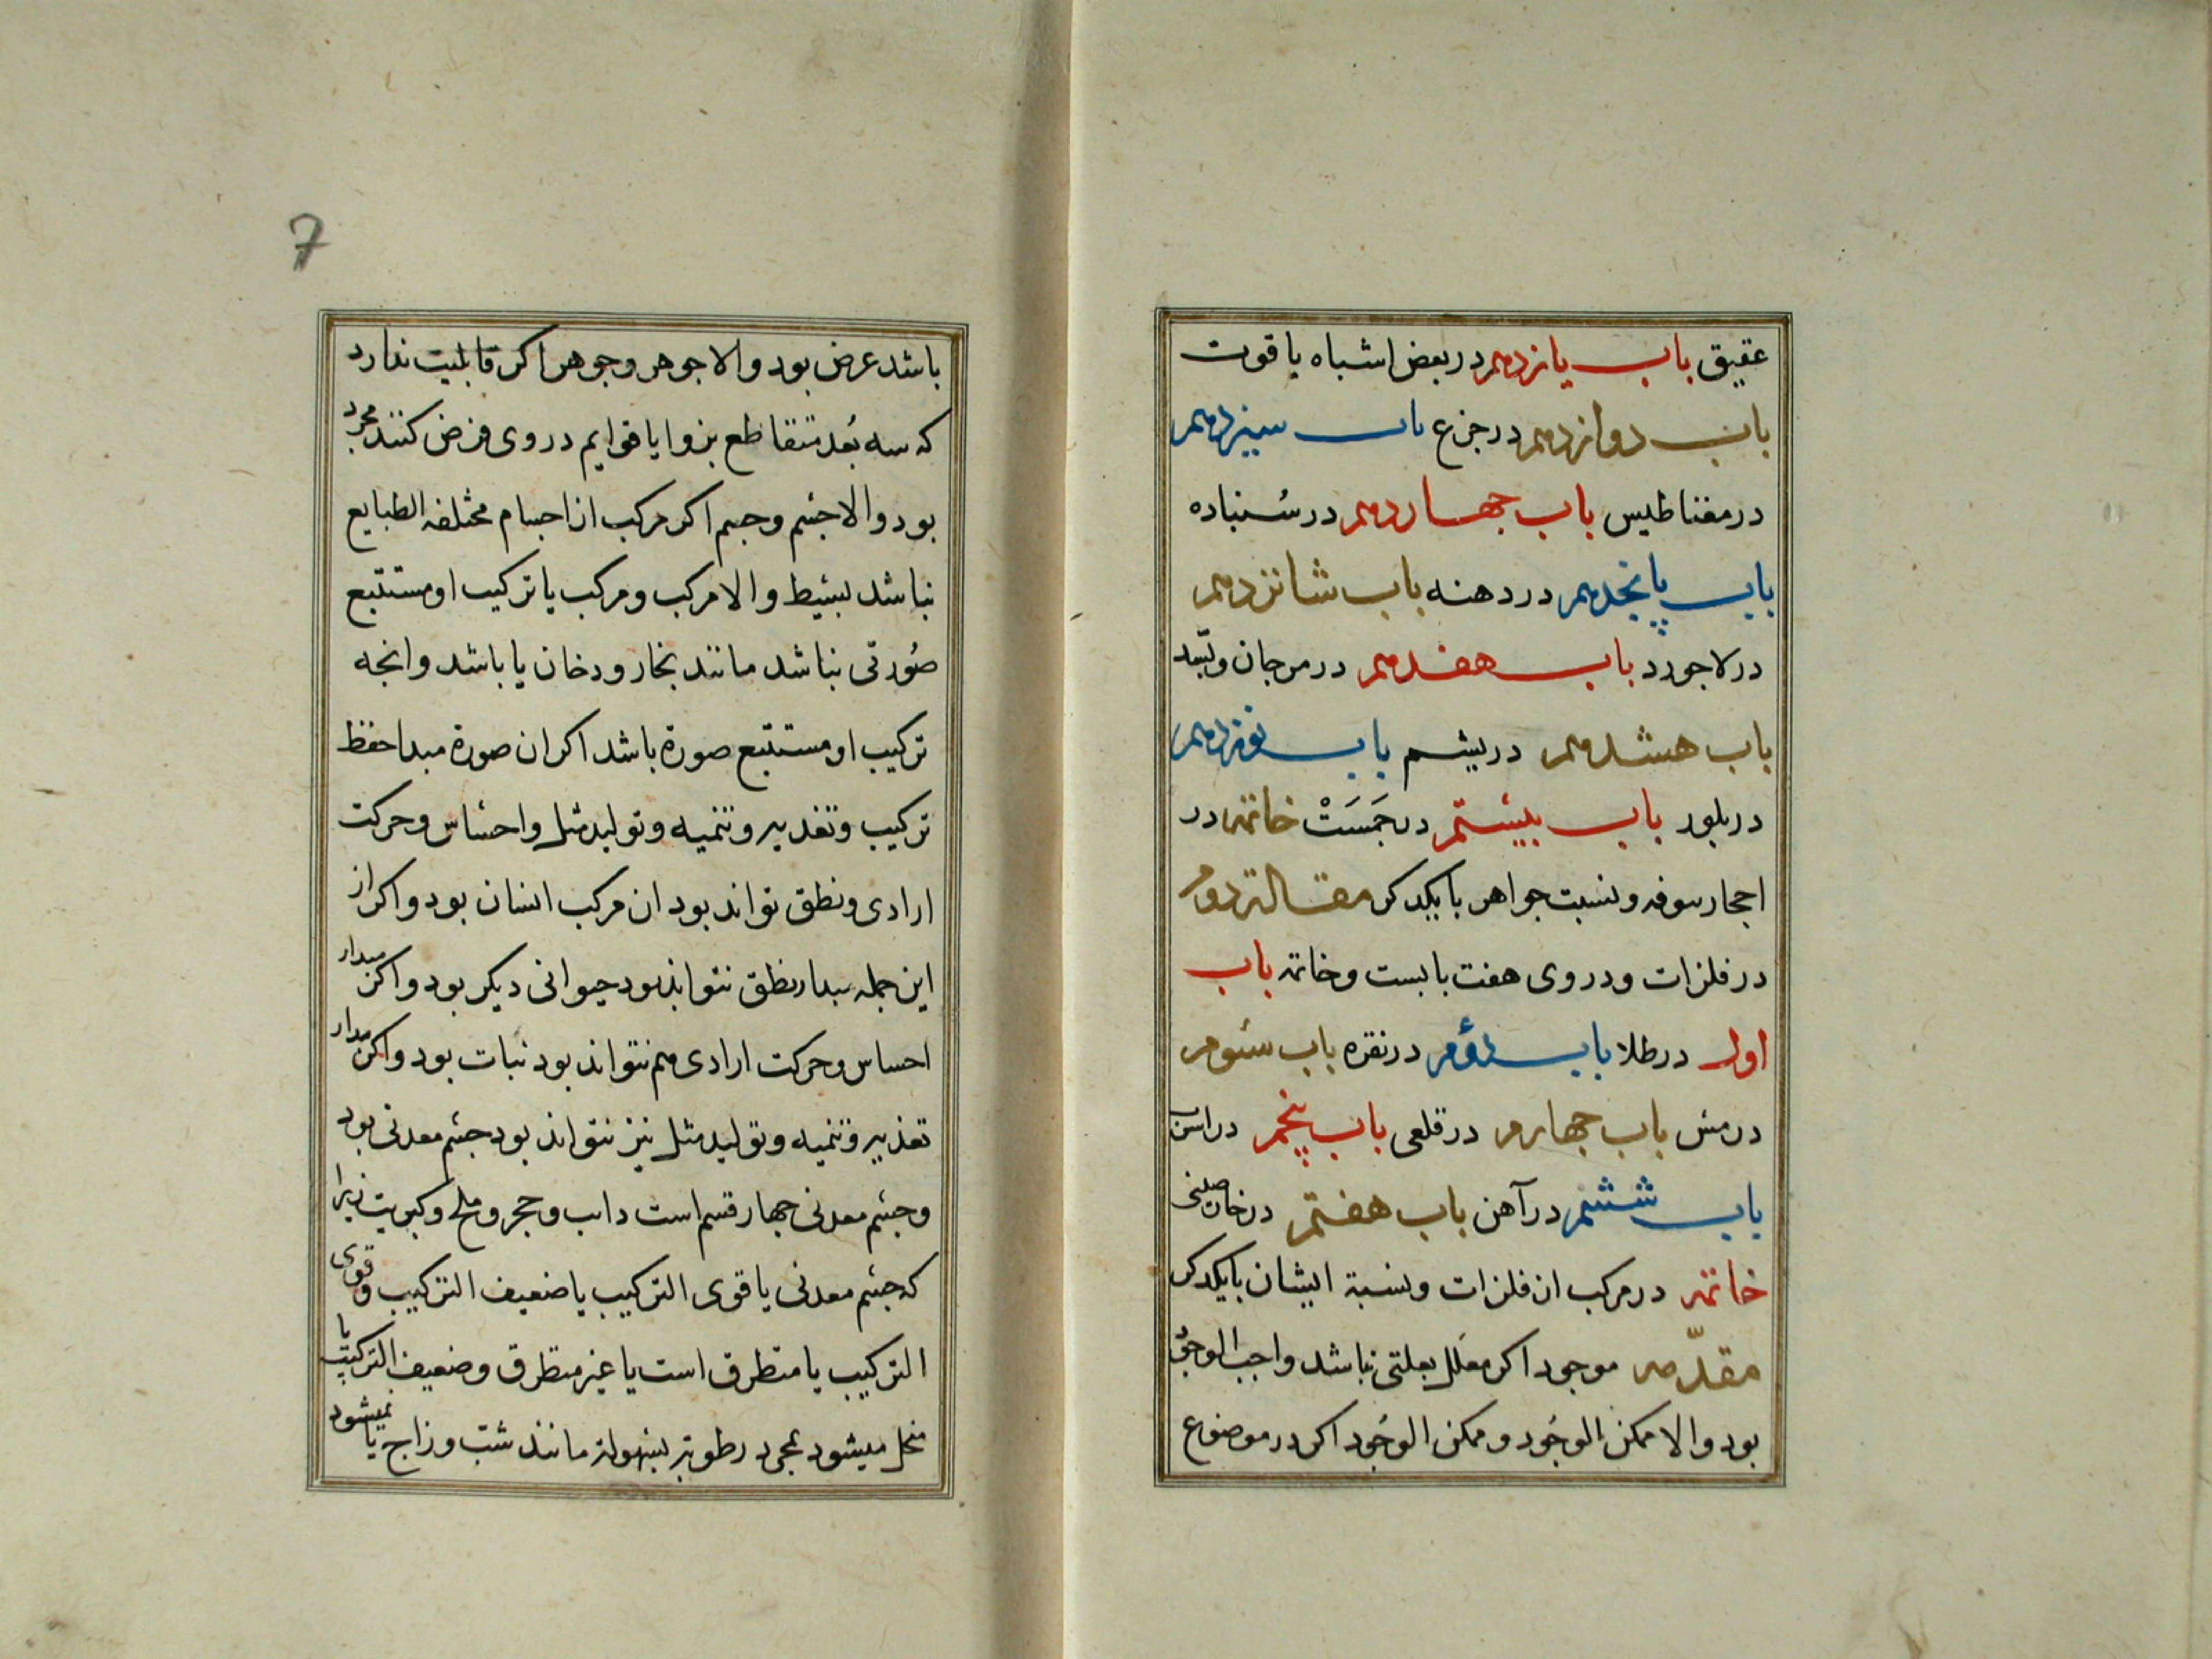 عقیق باب یازدهم در بعض اشباه یاقوت
باب دوازدهم در جزع باب سیزدهم
در مغناطیس باب جهاردهم در سُنباده
باب پانجدهم در دهنه باب شانزدهم
در لاجورد باب هفدهم در مرجان و بُسّد
باب هشدهم در یشم باب نوزدهم
در بلور باب بیستم در جَمَسَتْ خاتمه در
احجار سوفه و نسبت جواهر با یکدکر مقاله دوم
در فلزات و در وی هفت بابست و خاتمه باب
اول در طلا باب دوُم در نقره باب سئوم
در مس باب جهارم در قلعی باب پنجم در اسرب
باب ششم در آهن باب هفتم در خارصینی
خاتمه در مرکب از فلزات و نسبة ایشان با یکدکر
مقدّمه موجود اکر معلل بعلتی نباشد واجب الوجوُد
بود والا ممکن الوجُود و ممکن الوجُود اکر در موضوع
7
باشد عرض بود والا جوهر و جوهر اکر قابلیت ندارد
که سه بُعد متقاطع بزوایا قوایم در وی فرض کنند مجرد
بود والا جسم و جسم اکر مرکب از اجسام مختلفه الطبایع
نباشد بسیط والا مرکب و مرکب یا ترکیب او مستتبع
صُورتی نباشد مانند بخار و دخان یا باشد و انجه
ترکیب او مستتبع صورة باشد اکر ان صورة مبدا حفظ
ترکیب و تغذیه و تنمیه و تولید مثل و احساس و حرکت
ارادی و نطق تواند بود ان مرکب انسان بود و اکر از
این جمله مبدا نطق نتواند بود حیوانی دیکر بود و اکر مبدا
احساس و حرکت ارادی هم نتواند بود نبات بود و اکر مبدا
تغذیه و تنمیه و تولید مثل نیز نتواند بود جسم معدنی بود
و جسم معدنی جهار قسم است داب و حجر و ملح و کبریت زیرا
که جسم معدنی یا قوی الترکیب یا ضعیف الترکیب و قوی
الترکیب یا متطرق است یا غیر متطرق و ضعیف الترکیب یا
منحل میشود بمجرد رطوبة بسهولة مانند شب و زاج یا نمیشود